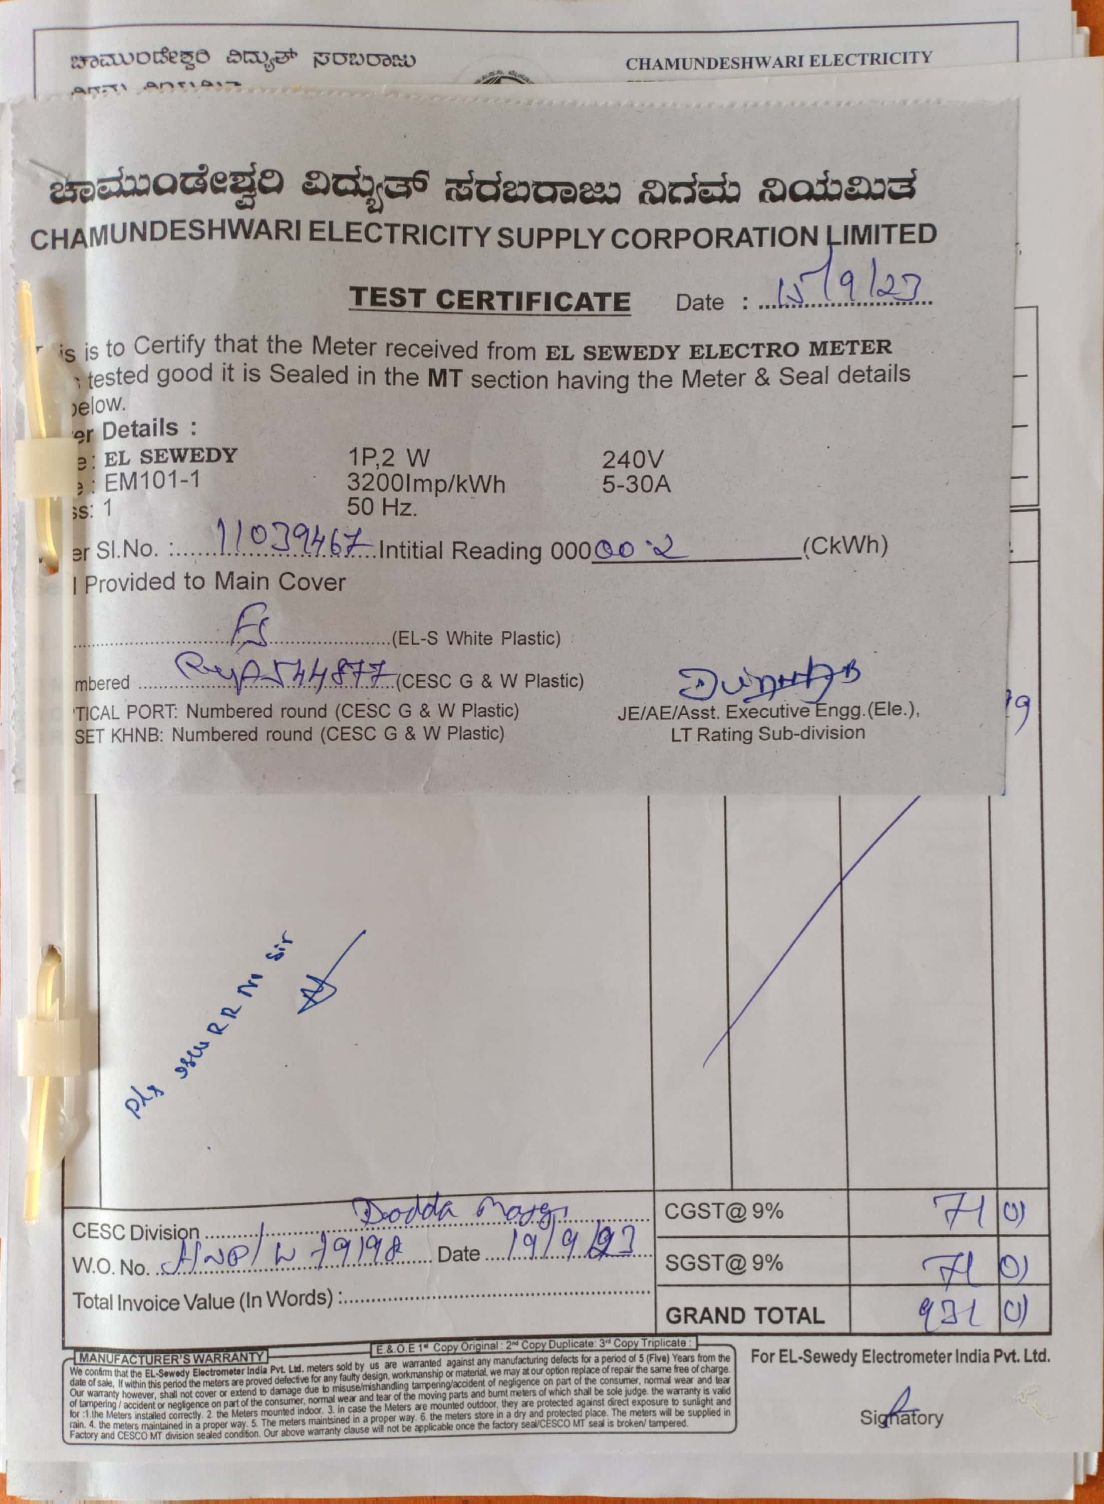 ಚಾಮುಂಡೇಶ್ವರಿ ವಿದ್ಯುತ್ ಸರಬರಾಜು
CHAMUNDESHWARI ELECTRICITY
ಚಾಮುಂಡೇಶ್ವರಿ ವಿದ್ಯುತ್ ಸರಬರಾಜು ನಿಗಮ ನಿಯಮಿತ
CHAMUNDESHWARI ELECTRICITY SUPPLY CORPORATION LIMITED
TEST CERTIFICATE Date : 15/9/23
is is to Certify that the Meter received from EL SEWEDY ELECTRO METER
tested good it is Sealed in the MT section having the Meter & Seal details
below.
er Details :
e : EL SEWEDY 1P,2 W 240V
e : EM101-1 3200Imp/kWh 5-30A
ss: 1 50 Hz.
er Sl.No. : 11039467 Intitial Reading 000 00.2 (CkWh)
l Provided to Main Cover
(EL-S White Plastic)
mbered 544877 (CESC G & W Plastic)
TICAL PORT: Numbered round (CESC G & W Plastic)
SET KHNB: Numbered round (CESC G & W Plastic)
JE/AE/Asst. Executive Engg.(Ele.),
LT Rating Sub-division
RR No Sir
CESC Division Dodda
W.O. No. 79198 Date 19/9/23
Total Invoice Value (In Words) :
CGST@ 9% 71 01
SGST@ 9% 71 01
GRAND TOTAL 931 01
E & O.E 1st Copy Original : 2nd Copy Duplicate: 3rd Copy Triplicate :
MANUFACTURER'S WARRANTY
We confirm that the EL-Sewedy Electrometer India Pvt. Ltd. meters sold by us are warranted against any manufacturing defects for a period of 5 (Five) Years from the
date of sale, If within this period the meters are proved defective for any faulty design, workmanship or material, we may at our option replace of repair the same free of charge.
Our warranty however, shall not cover or extend to damage due to misuse/mishandling tampering/accident of negligence on part of the consumer, normal wear and tear
of tampering / accident or negligence on part of the consumer, normal wear and tear of the moving parts and burnt meters of which shall be sole judge. the warranty is valid
for :1.the Meters installed correctly. 2. the Meters mounted indoor. 3. in case the Meters are mounted outdoor, they are protected against direct exposure to sunlight and
rain. 4. the meters maintained in a proper way. 5. The meters maintsined in a proper way. 6. the meters store in a dry and protected place. The meters will be supplied in
Factory and CESCO MT division sealed condition. Our above warranty clause will not be applicable once the factory seal/CESCO MT seal is broken/ tampered.
For EL-Sewedy Electrometer India Pvt. Ltd.
Signatory